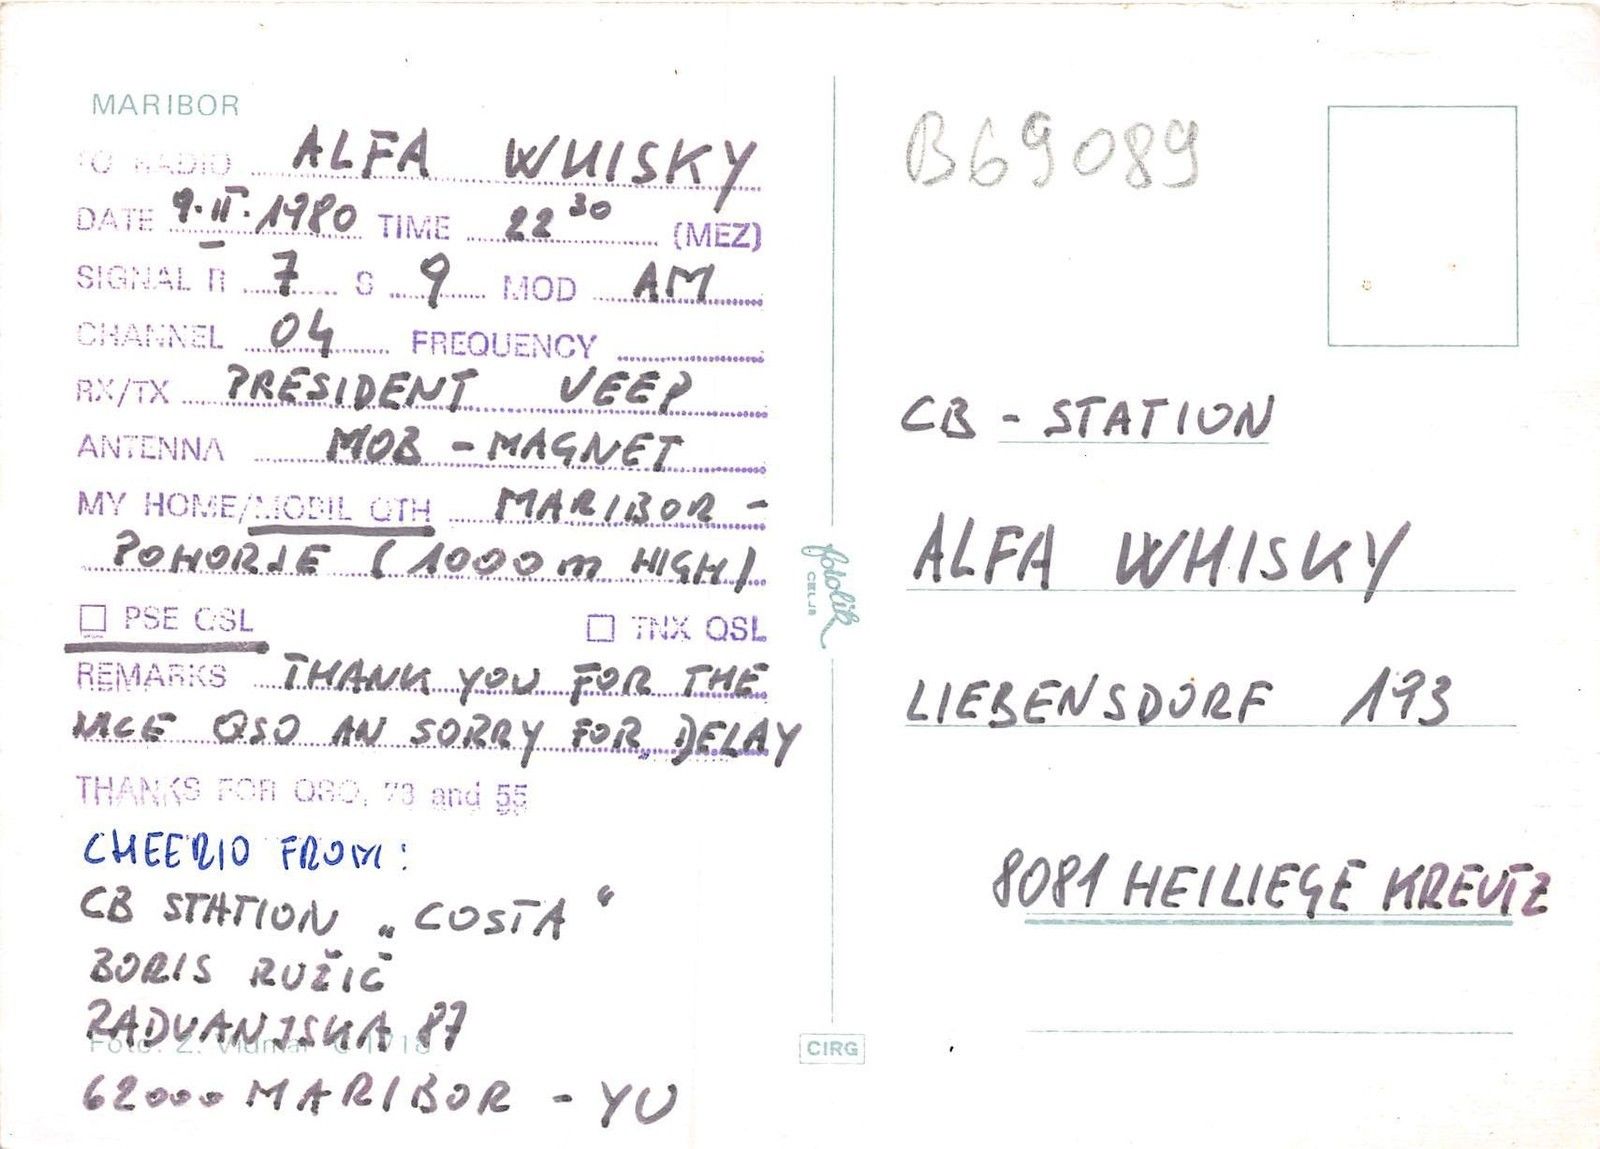 MARIBOR
TO RADIO ALFA WHISKY
DATE 9.II.1980 TIME 22 30 (MEZ)
SIGNAL R 7 S 9 MOD AM
CHANNEL 04 FREQUENCY
RX/TX PRESIDENT VEEP
ANTENNA MOB - MAGNET
MY HOME/MOBIL QTH MARIBOR -
POHORJE (1000 m HIGH)
☐ PSE QSL ☐ TNX QSL
REMARKS THANK YOU FOR THE
NICE QSO AN SORRY FOR DELAY
THANKS FOR QSO, 73 and 55
CHEERIO FROM:
CB STATION „COSTA“
BORIS RUŽIČ
RADVANJSKA 87
Foto: Z. Vidmar
62000 MARIBOR - YU
fotolik
CELJE
CIRG
B69089
CB - STATION
ALFA WHISKY
LIEBENSDORF 193
8081 HEILIEGE KREUTZ